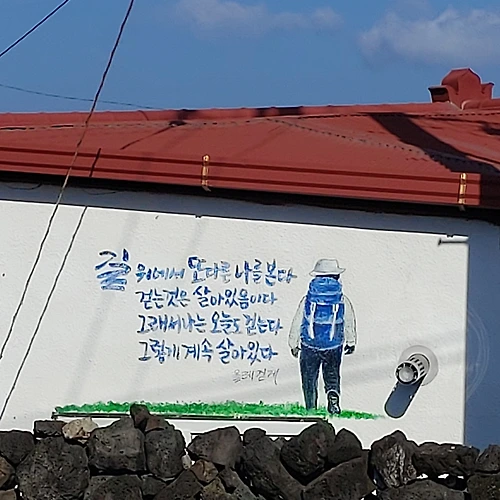 길 위에서 또다른 나를 본다
걷는것은 살아있음이다
그래서 나는 오늘도 걷는다
그렇게 계속 살아있다
올레 걷게